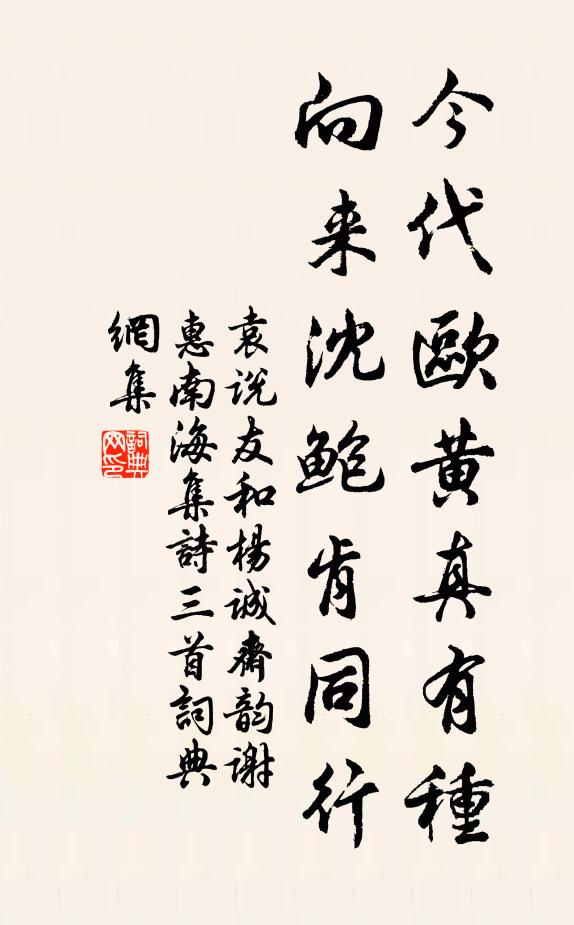 今代歐黄真有種
向来沈鲍肯同行
袁説友和楊誠齋韵謝
惠南海集詩三首詞典
網集
詞典
网印